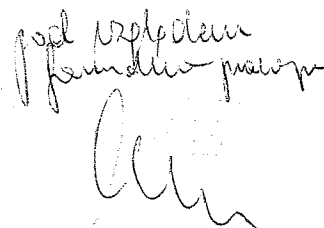 pod względem
formalno prawnym